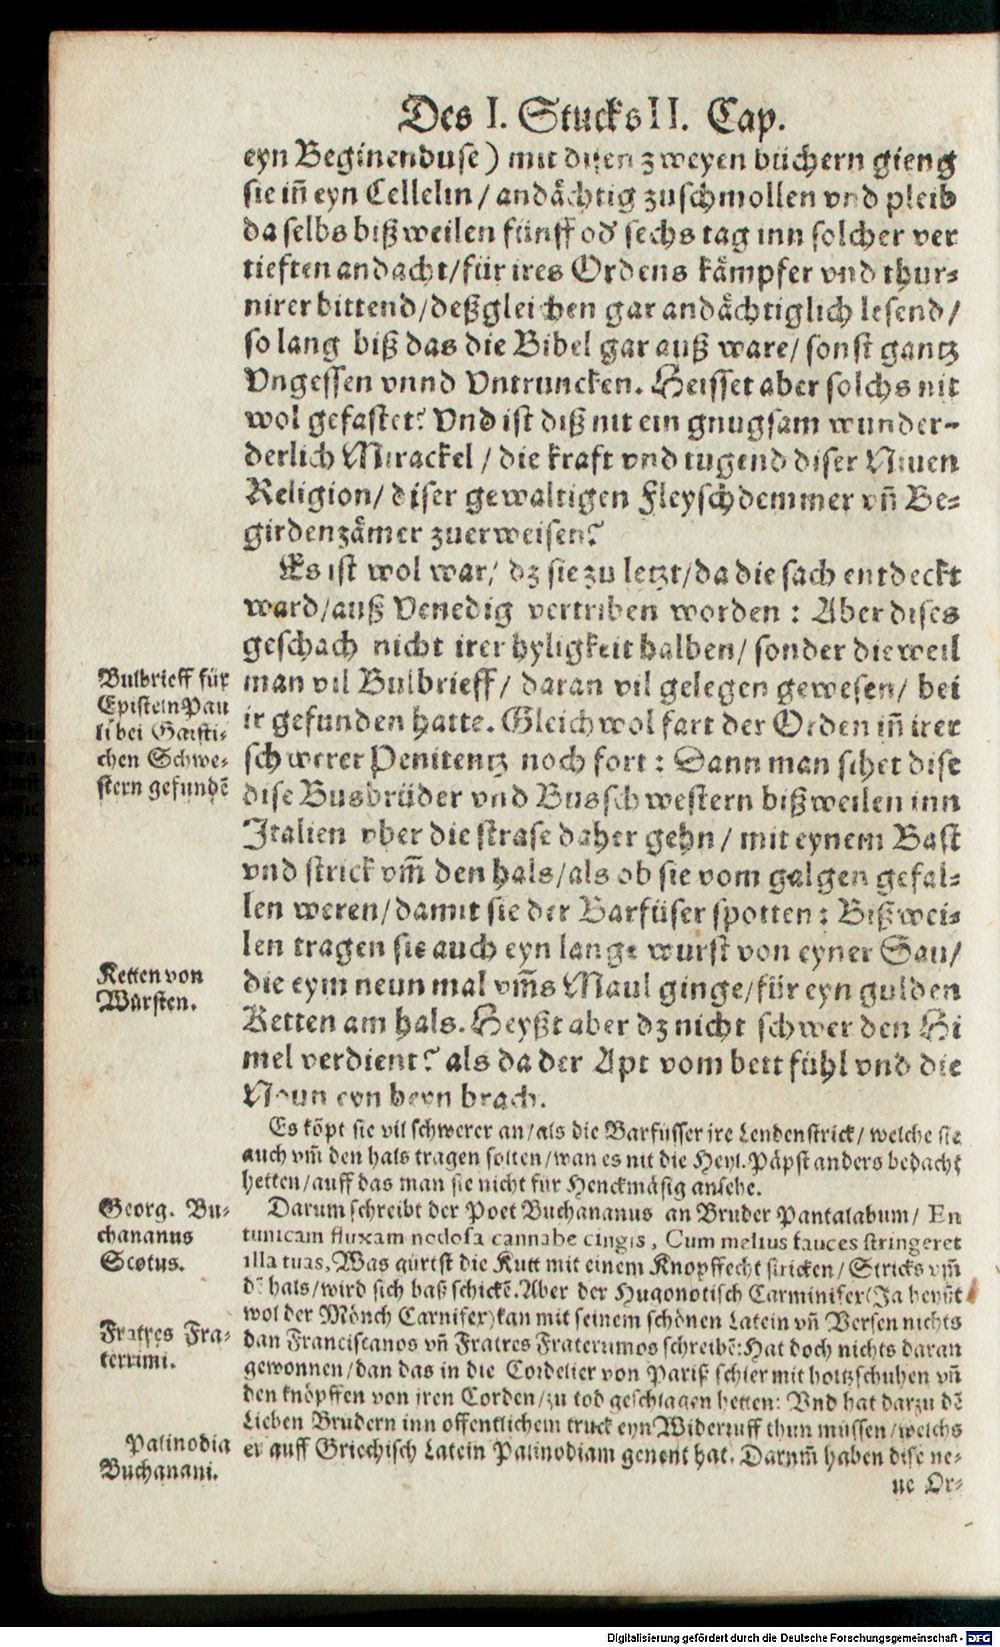 Des I. Stucks II. Cap.
eyn Beginenduse) mit disen zweyen büchern gieng
sie iñ eyn Cellelin / andächtig zuschmollen vnd pleib
da selbs bißweilen fünff od' sechs tag inn solcher ver
tieften andacht/für ires Ordens kämpfer vnd thur-
nirer bittend/deßgleichen gar andächtiglich lesend/
so lang biß das die Bibel gar auß ware/ sonst gantz
Vngessen vnnd Vntruncken. Heisset aber solchs nit
wol gefastet? Vnd ist diß nit ein gnugsam wunder-
derlich Mirackel / die kraft vnd tugend diser Niuen
Religion/ diser gewaltigen Fleyschdemmer vñ Be-
girdenzämer zuerweisen?
Es ist wol war/ dz sie zu letzt/da die sach entdeckt
ward/auß Venedig vertriben worden : Aber dises
geschach nicht irer hyligkeit halben/ sonder die weil
Bulbrieff für
Episteln Pau
li bei Gaisti-
chen Schwe-
stern gefundē
man vil Bulbrieff/ daran vil gelegen gewesen/ bei
ir gefunden hatte. Gleichwol fart der Orden iñ irer
schwerer Penitentz noch fort : Dann man sihet dise
dise Busbrüder vnd Busschwestern bißweilen inn
Italien vber die strase daher gehn / mit eynem Bast
vnd strick vm̃ den hals/als ob sie vom galgen gefal-
len weren/damit sie der Barfüser spotten : Bißwei-
len tragen sie auch eyn lange wurst von eyner Sau/
Ketten von
Würsten.
die eym neun mal vm̃s Maul ginge/für eyn gulden
Ketten am hals. Heyßt aber dz nicht schwer den Hi
mel verdient? als da der Apt vom bett fühl vnd die
Noun eyn beyn brach.
Es köpt sie vil schwerer an/als die Barfüsser ire Lendenstrick/ welche sie
auch vm̃ den hals tragen solten/wan es nit die Heyl. Päpst anders bedacht
hetten/auff das man sie nicht für Henckmäsig ansehe.
Georg. Bu-
chananus
Scotus.
Darum schreibt der Poet Buchananus an Bruder Pantalabum/ En
tunicam fluxam nodosa cannabe cingis, Cum melius fauces stringeret
illa tuas, Was gürtst die Kutt mit einem Knopffecht stricken/ Stricks vm̃
dē hals/wird sich baß schickē. Aber der Hugonotisch Carminifex(Ja heyßt
wol der Mönch Carnifex)kan mit seinem schönen Latein vñ Versen nichts
Fratres Fra-
terrimi.
dan Franciscanos vñ Fratres Fraterrimos schreibē: Hat doch nichts daran
gewonnen/dan das in die Cordelier von Pariß schier mit holtzschuhen vñ
den knöpffen von iren Corden/zu tod geschlagen hetten: Vnd hat darzu dē
Lieben Brudern inn offentlichem truck eyn Widerruff thun müssen/welchs
Palinodia
Buchanani.
er auff Griechisch Latein Palinodiam genent hat. Darum̃ haben dise ne-
ue Or-
Digitalisierung gefördert durch die Deutsche Forschungsgemeinschaft - DFG